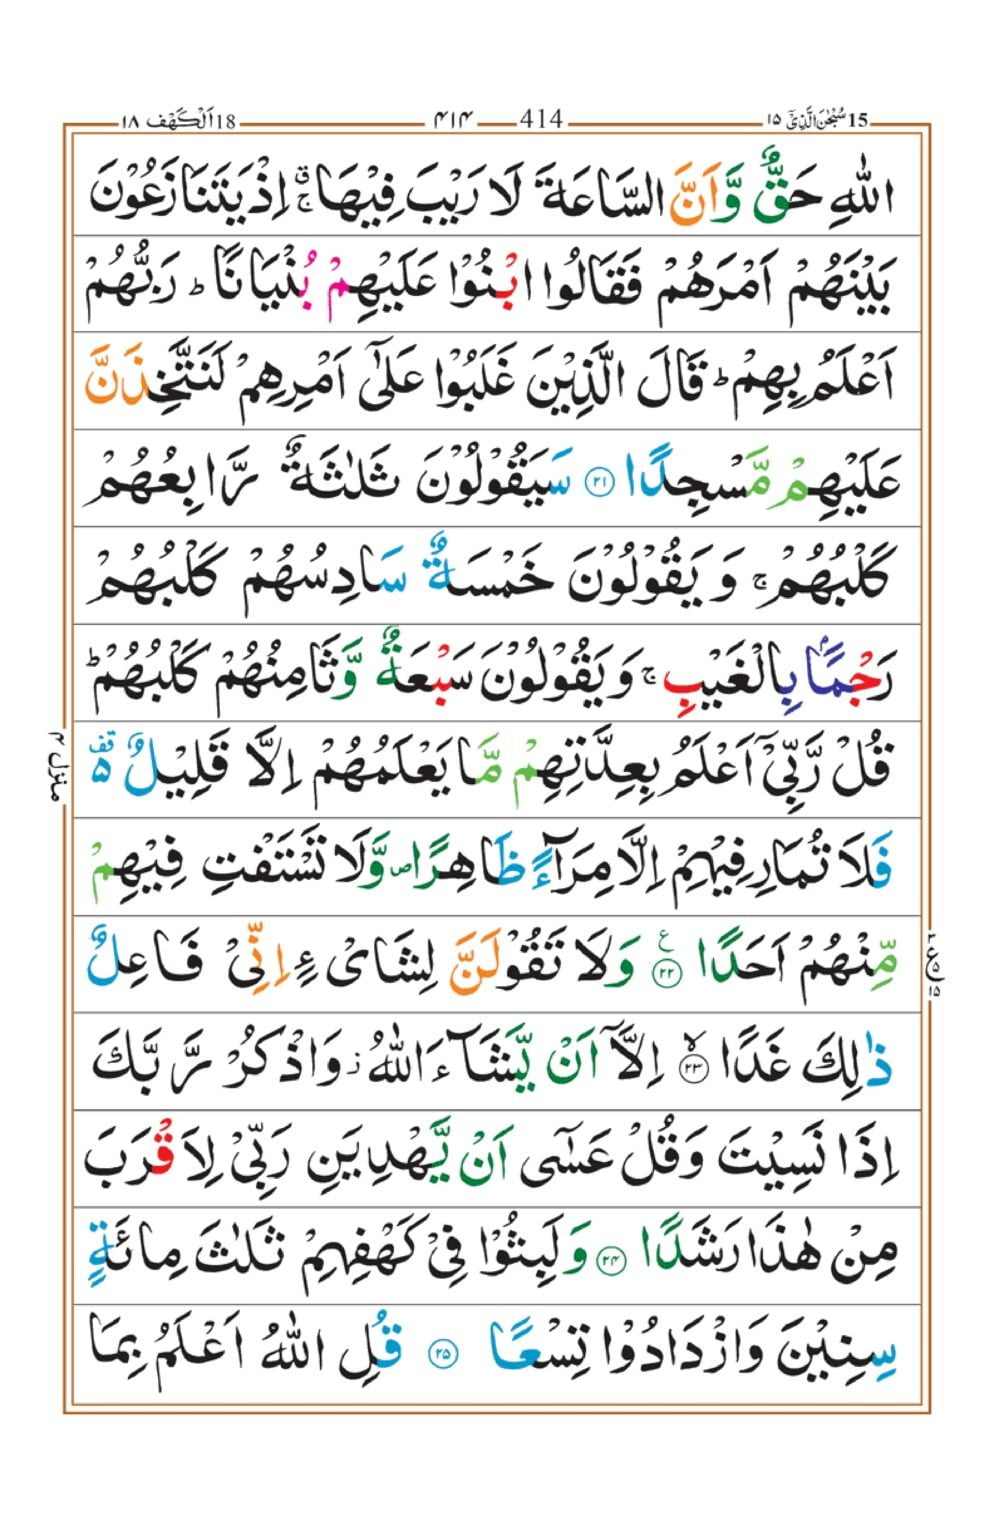 15 سُبْحٰنَ الَّذِیْۤ ۱۵
414 ۴۱۴
18 اَلْكَهْف ۱۸
اللّٰهِ حَقٌّ وَّ اَنَّ السَّاعَةَ لَا رَیْبَ فِیْهَا ۚۗ اِذْ یَتَنَازَعُوْنَ
بَیْنَهُمْ اَمْرَهُمْ فَقَالُوا ابْنُوْا عَلَیْهِمْ بُنْیَانًا ؕ رَبُّهُمْ
اَعْلَمُ بِهِمْ ؕ قَالَ الَّذِیْنَ غَلَبُوْا عَلٰۤی اَمْرِهِمْ لَنَتَّخِذَنَّ
عَلَیْهِمْ مَّسْجِدًا ۲۱ سَیَقُوْلُوْنَ ثَلٰثَةٌ رَّابِعُهُمْ
كَلْبُهُمْ ۚ وَ یَقُوْلُوْنَ خَمْسَةٌ سَادِسُهُمْ كَلْبُهُمْ
رَجْمًۢا بِالْغَیْبِ ۚ وَ یَقُوْلُوْنَ سَبْعَةٌ وَّ ثَامِنُهُمْ كَلْبُهُمْ ؕ
قُلْ رَّبِّیْۤ اَعْلَمُ بِعِدَّتِهِمْ مَّا یَعْلَمُهُمْ اِلَّا قَلِیْلٌ ۵ قف
فَلَا تُمَارِ فِیْهِمْ اِلَّا مِرَآءً ظَاهِرًا ۪ وَّ لَا تَسْتَفْتِ فِیْهِمْ
مِّنْهُمْ اَحَدًا ۲۲ ع وَ لَا تَقُوْلَنَّ لِشَایْءٍ اِنِّیْ فَاعِلٌ
ذٰلِكَ غَدًا ۲۳ ۙ اِلَّاۤ اَنْ یَّشَآءَ اللّٰهُ ؗ وَ اذْكُرْ رَّبَّكَ
اِذَا نَسِیْتَ وَ قُلْ عَسٰۤی اَنْ یَّهْدِیَنِ رَبِّیْ لِاَقْرَبَ
مِنْ هٰذَا رَشَدًا ۲۴ وَ لَبِثُوْا فِیْ كَهْفِهِمْ ثَلٰثَ مِائَةٍ
سِنِیْنَ وَ ازْدَادُوْا تِسْعًا ۲۵ قُلِ اللّٰهُ اَعْلَمُ بِمَا
منزل ۴